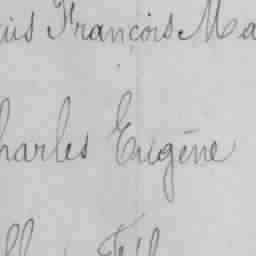 uis François Ma
harles Eugène